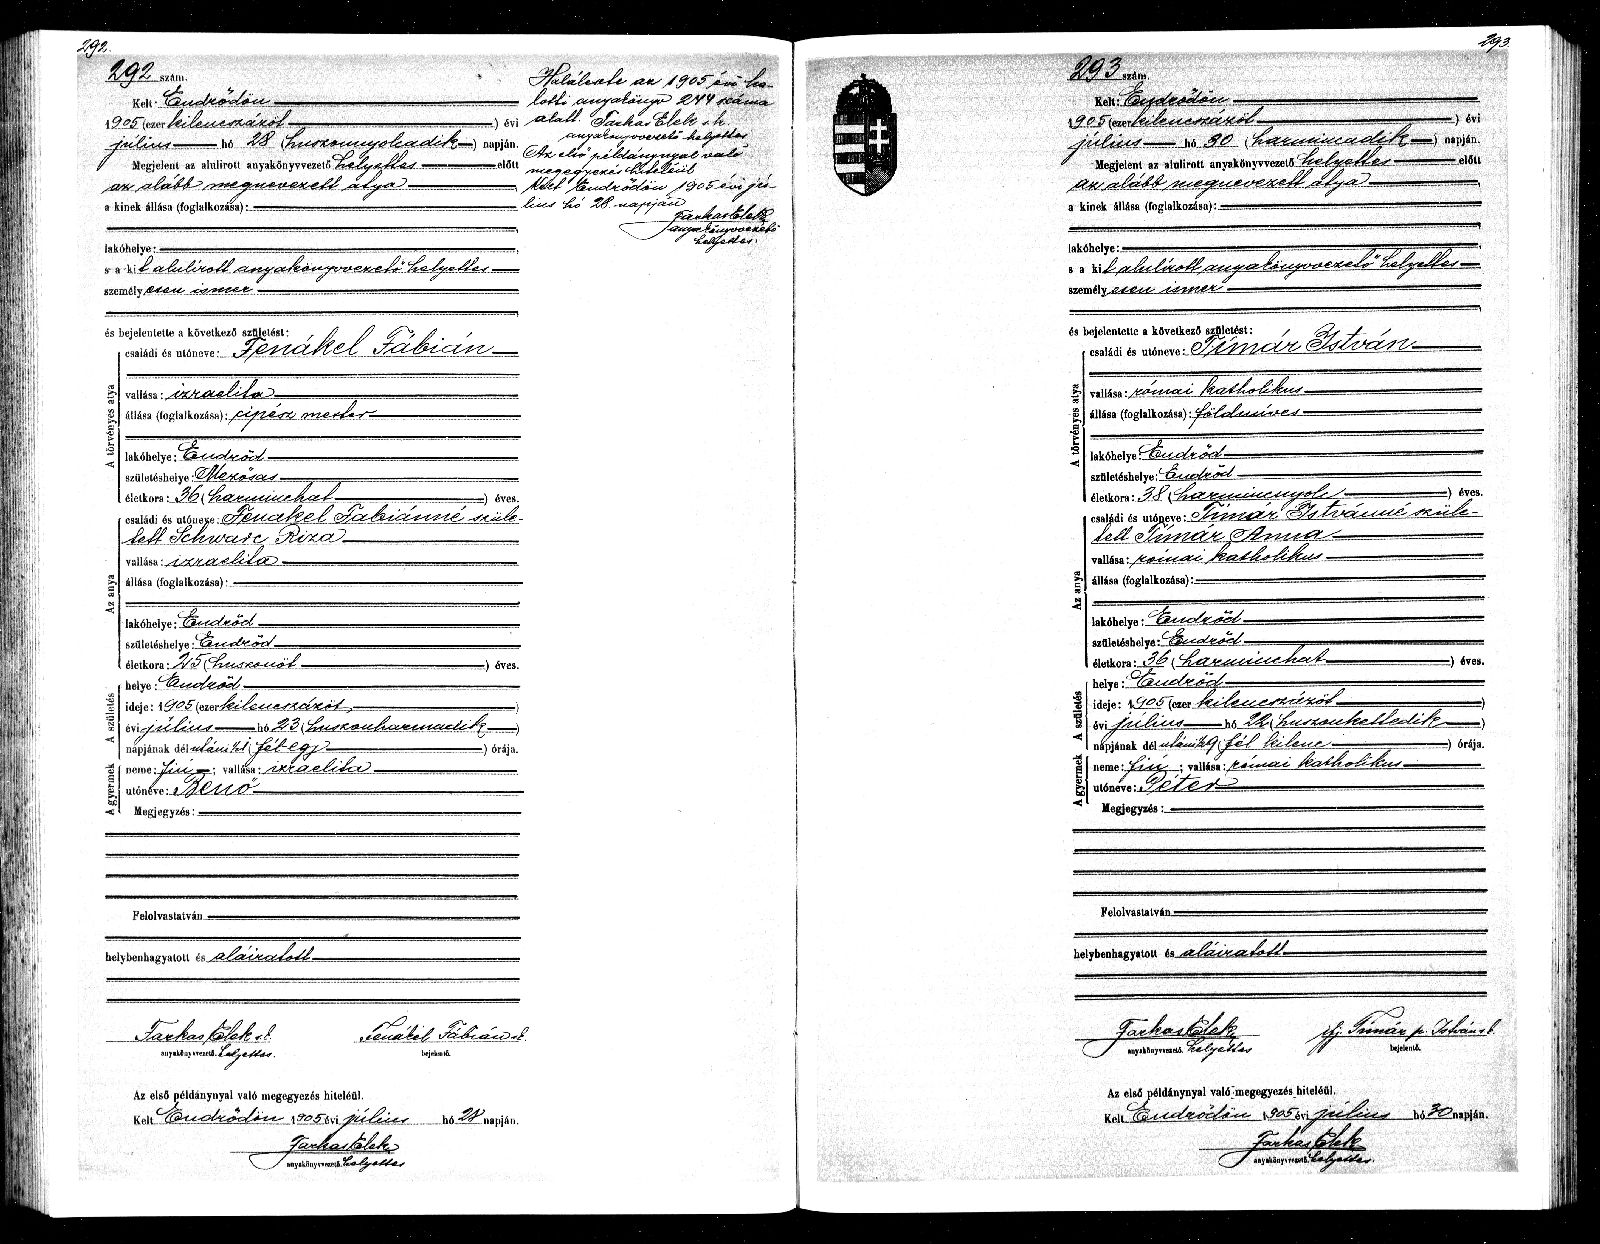 292.
292 szám.
Kelt Endrődön
1905 (ezer kilenczszázöt) évi
július hó 28 (huszonnyolcadik) napján.
Megjelent az alulirott anyakönyvvezető helyettes előtt
az alább megnevezett atya
a kinek állása (foglalkozása):
lakóhelye:
s a kit alulírott anyakönyvvezető helyettes
személyesen ismer
és bejelentette a következő születést:
A törvényes atya
családi és utóneve: Fenákel Fábián
vallása: izraelita
állása (foglalkozása): cipész mester
lakóhelye: Endrőd
születéshelye: Mezősas
életkora: 36 (harminchat) éves.
Az anya
családi és utóneve: Fenákel Fábiánné szüle-
tett Schwarc Róza
vallása: izraelita
állása (foglalkozása):
lakóhelye: Endrőd
születéshelye: Endrőd
életkora: 25 (huszonöt) éves.
A születés
helye: Endrőd
ideje: 1905 (ezer kilenczszázöt)
évi július hó 23 (huszonharmadik)
napjának dél utáni ½1 (fél egy) órája.
A gyermek
neme: fiú; vallása: izraelita
utóneve: Benő
Megjegyzés:
Felolvastatván
helybenhagyatott és aláiratott
Farkas Elek s.k. Fenákel Fábián s.k.
anyakönyvvezető helyettes. bejelentő.
Az első példánynyal való megegyezés hiteléül.
Kelt Endrődön 1905 évi július hó 28 napján.
Farkas Elek
anyakönyvvezető helyettes
Haláleste az 1905 évi ha-
lotti anyakönyv 244 száma
alatt. Farkas Elek s.k.
anyakönyvvezető helyettes
Az első példánynyal való
megegyezés hiteléül
Kelt Endrődön 1905 évi jú-
lius hó 28. napján
Farkas Elek
anyakönyvvezető
helyettes.
293
293 szám.
Kelt: Endrődön
1905 (ezer kilenczszázöt) évi
július hó 30 (harmincadik) napján.
Megjelent az alulirott anyakönyvvezető helyettes előtt
az alább megnevezett atya
a kinek állása (foglalkozása):
lakóhelye:
s a kit alulírott anyakönyvvezető helyettes
személyesen ismer
és bejelentette a következő születést:
A törvényes atya
családi és utóneve: Tímár István
vallása: római katholikus
állása (foglalkozása): földmíves
lakóhelye: Endrőd
születéshelye: Endrőd
életkora: 38 (harmincnyolc) éves.
Az anya
családi és utóneve: Tímár Istvánné szüle-
tett Tímár Anna
vallása: római katholikus
állása (foglalkozása):
lakóhelye: Endrőd
születéshelye: Endrőd
életkora: 36 (harminchat) éves.
A születés
helye: Endrőd
ideje: 1905 (ezer kilenczszázöt)
évi július hó 22 (huszonkettedik)
napjának dél utáni ½9 (fél kilenc) órája.
A gyermek
neme: fiú; vallása: római katholikus
utóneve: Péter
Megjegyzés:
Felolvastatván
helybenhagyatott és aláiratott
Farkas Elek ifj. Tímár p. István s.k.
anyakönyvvezető. helyettes bejelentő.
Az első példánynyal való megegyezés hiteléül.
Kelt Endrődön 1905 évi július hó 30 napján.
Farkas Elek
anyakönyvvezető. helyettes.